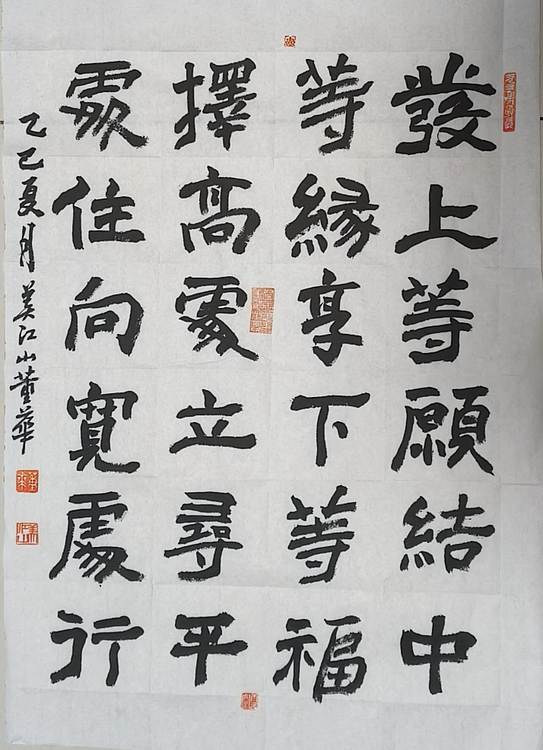 發上等願結中
等緣享下等福
擇高處立尋平
處住向寬處行
乙巳夏月美江山董華